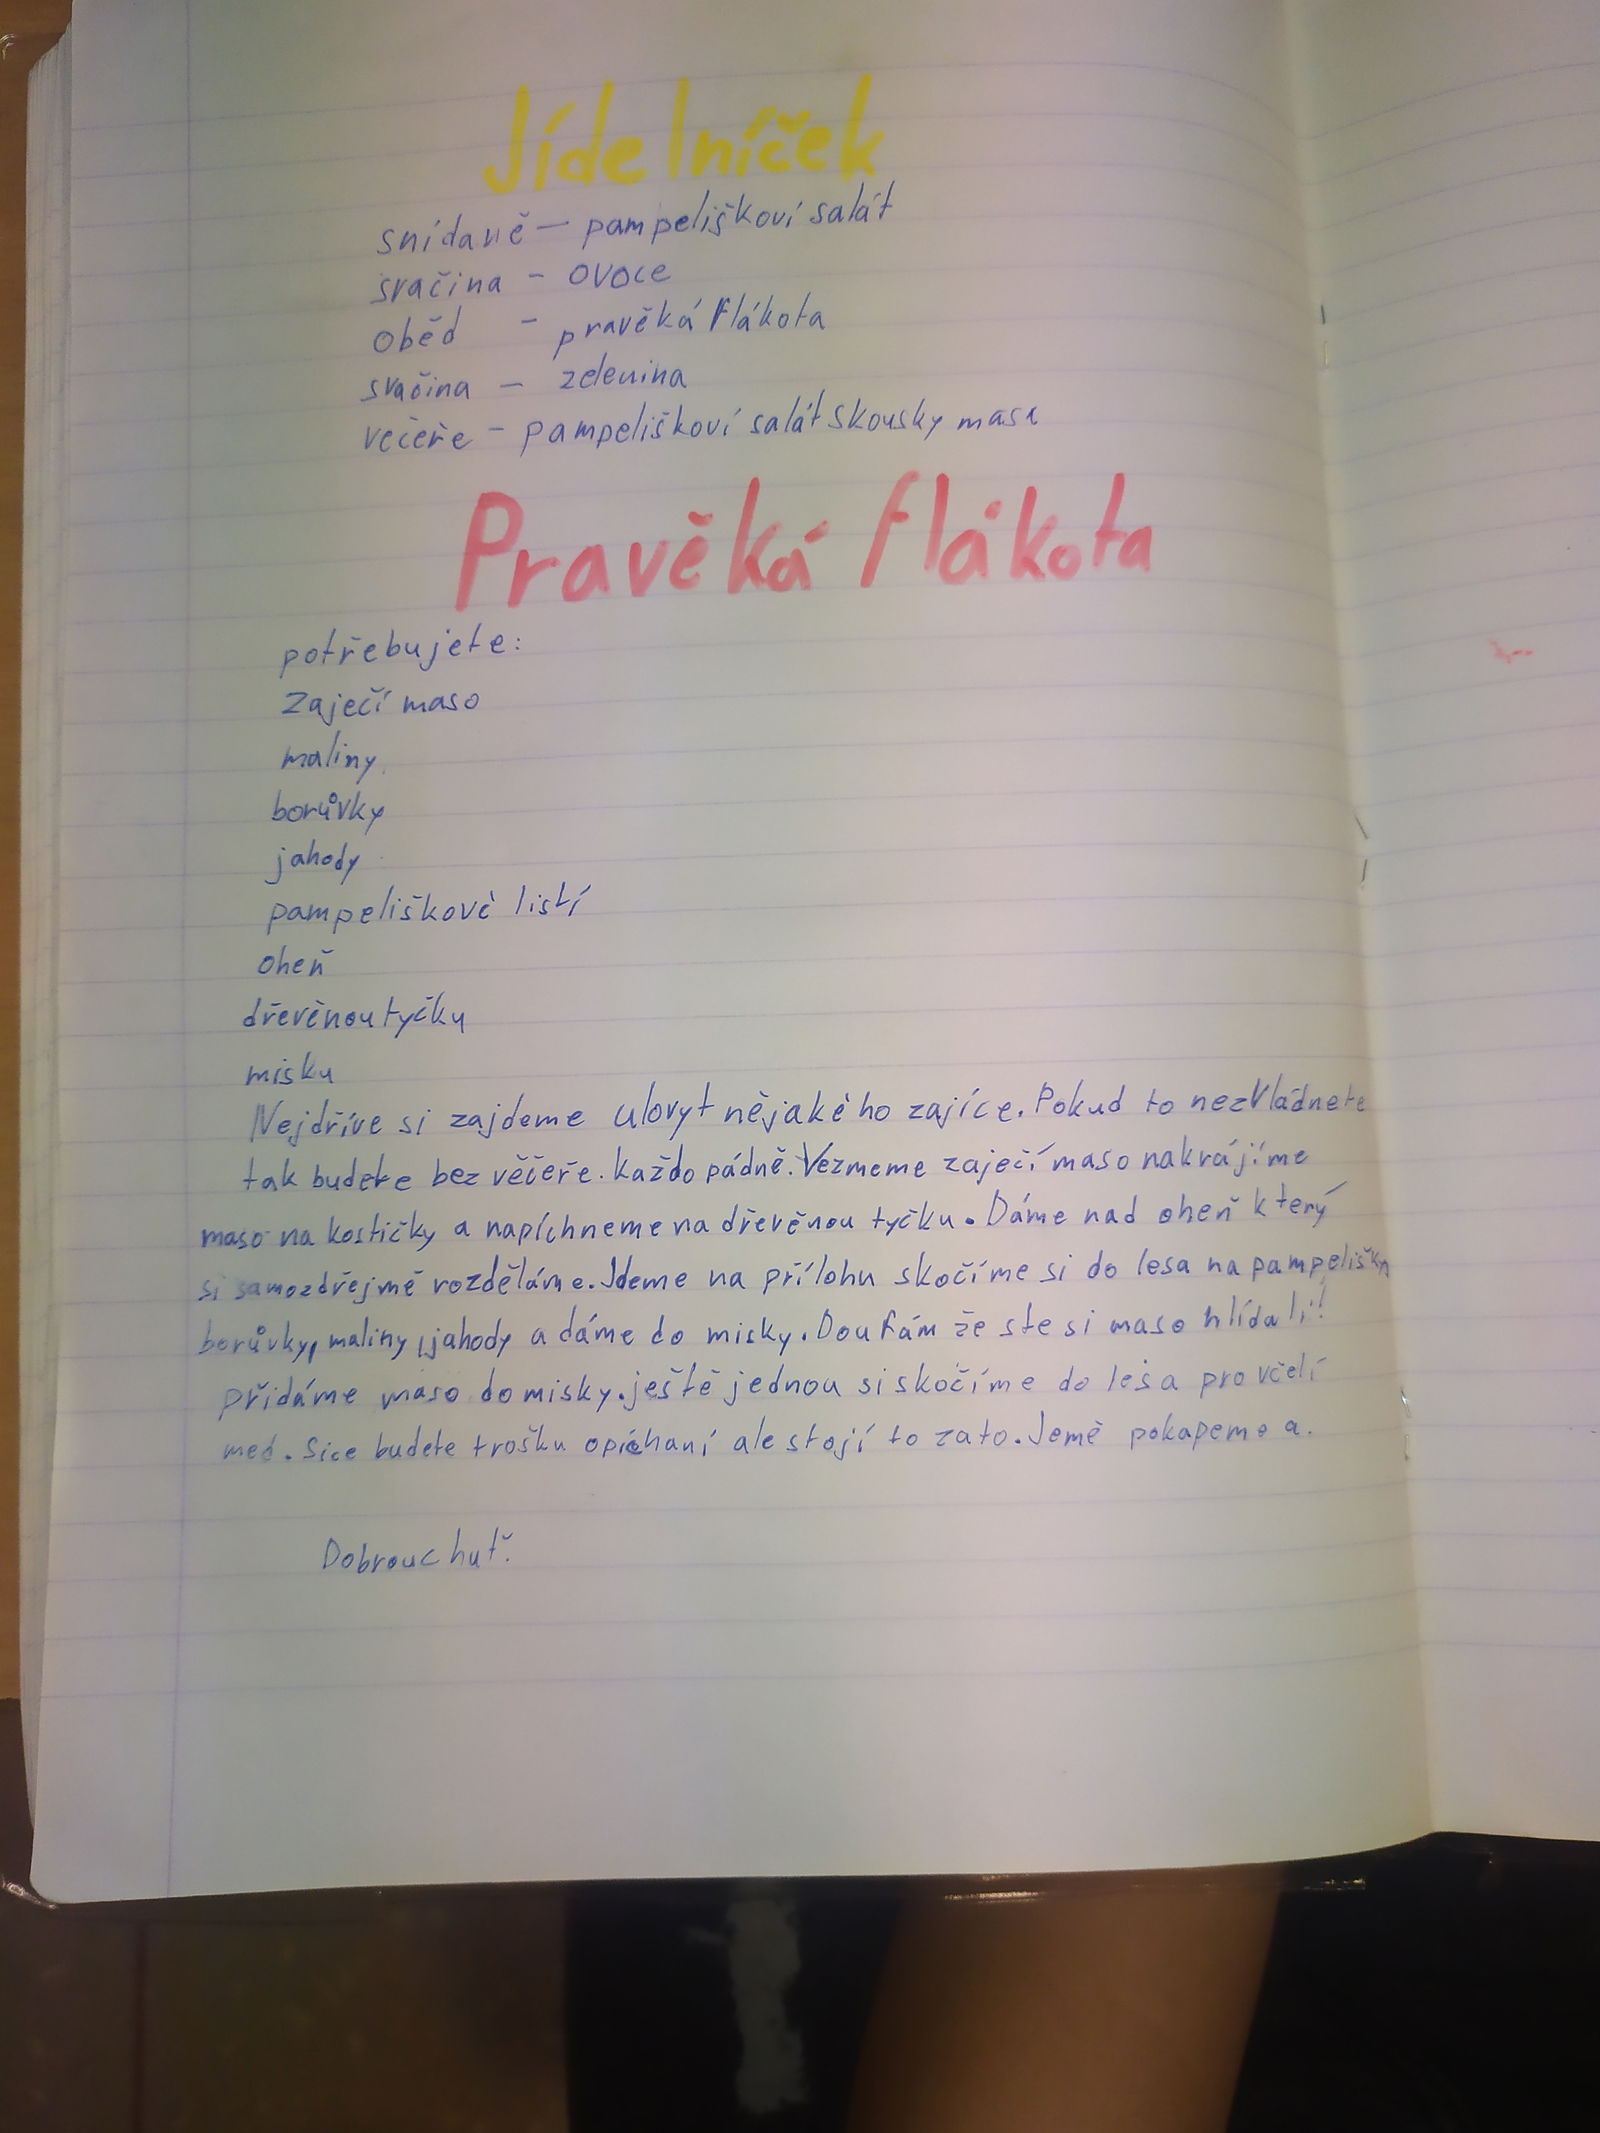 Jídelníček
snídaně – pampeliškoví salát
svačina - ovoce
oběd - pravěká flákota
svačina – zelenina
večeře - pampeliškoví salát skousky masa
Pravěká flákota
potřebujete:
Zaječí maso
maliny
borůvky
jahody
pampeliškové listí
oheň
dřevěnou tyčku
misku
Nejdříve si zajdeme ulovyt nějakého zajíce. Pokud to nezvládnete
tak budete bez věčeře. každo pádně. Vezmeme zaječí maso nakrájíme
maso na kostičky a napíchneme na dřevěnou tyčku. Dáme nad oheň který
si samozdřejmě rozděláme. Jdeme na přílohu skočíme si do lesa na pampelišky
borůvky, maliny, jahody a dáme do misky. Doufám že ste si maso hlídali!
přidáme maso do misky. ještě jednou si skočíme do lesa pro včelí
med. Sice budete trošku opíchaní ale stojí to zato. Jemě pokapeme a.
Dobrou chuť.